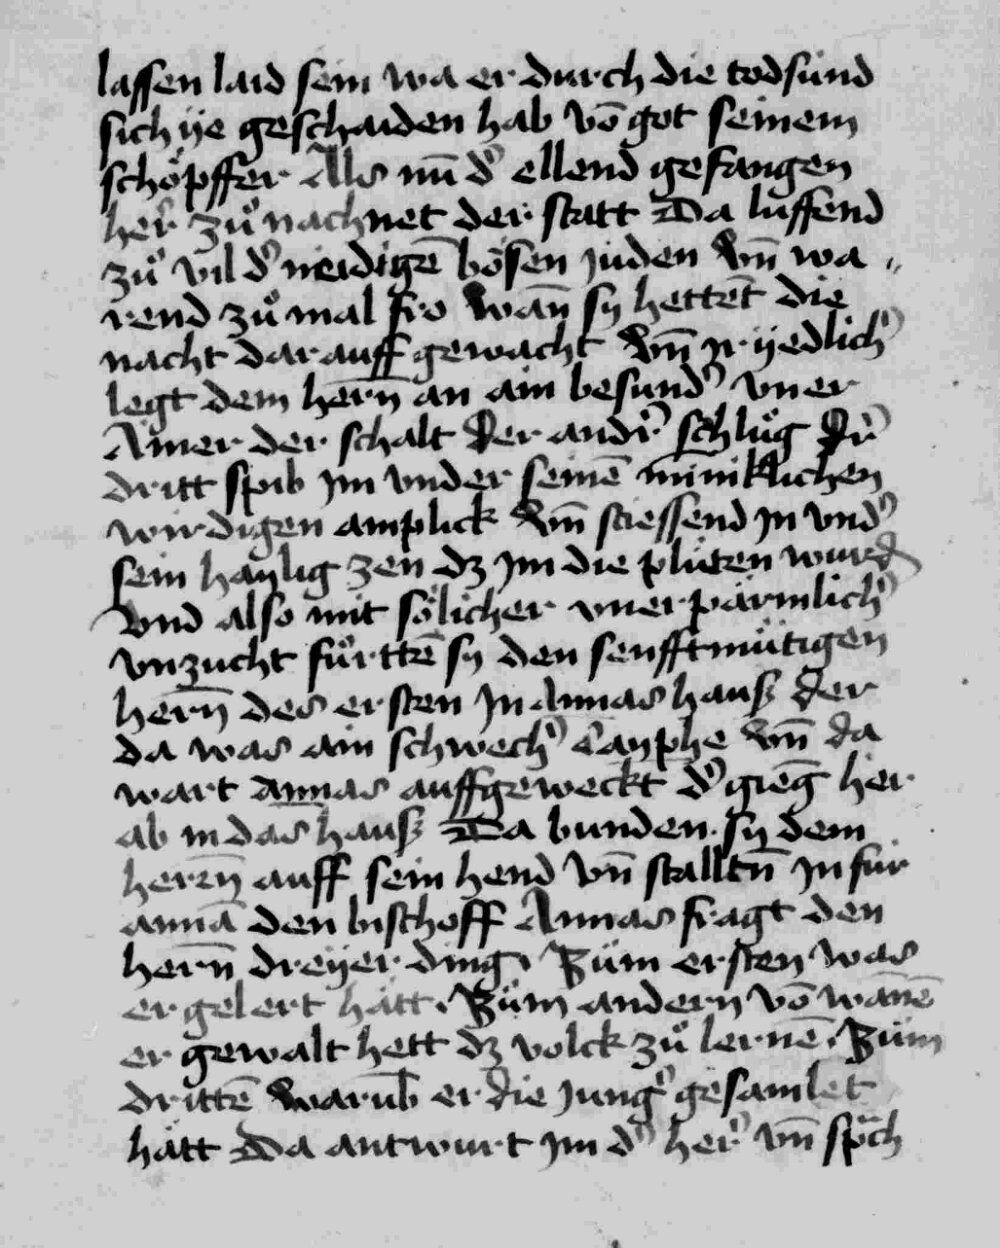 lassen laid sein wa er durch die todsünd
sich ije geschaiden hab vō got seinem
schöpffer Als nū dˀ ellend gefangen
her zuͦ nachnet der statt Da luffend
zuͦ vil dˀ neidigē bösen juden vn̄ wa„
rend zuͦ mal fro wan̄ sy hettēt die
nacht darauff gewacht vn̄ jr ijedlichˀ
legt dem hern̄ an ain besundˀ vner
Ainer der schalt Der andrˀ schluͦg Der
dritt spib jm vnder seinē miniklichen
wirdigen amplick vn̄ stiessend jn vndˀ
sein haylig zen dz jm die plüten wurd
Vnd also mit sölicher vnerpärmlichˀ
vnzucht fuͦrttē sy den senfftmütigen
hern̄ des ersten jn Annas hausz der
da was ain schwechˀ Cayphe vn̄ da
wart annas auffgeweckt dˀ gieng her
ab in das hausz Da bunden sy dem
heren̄ auff sein hend vn̄ stalltn̄ jn für
annā den bischoff Annas fragt den
hern̄ dreyer ding. Züm ersten was
er gelert hätt. Züm andern vō wānē
er gewalt hett dz volck zuͦ lernē. Züm
drittē warub̄ er die jungˀ gesamlet
hätt Da antwurt jm dˀ herˀ vn̄ sprach